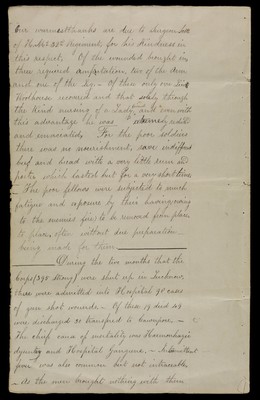 Our warmest thanks are due to Surgeon
of H.M's 32d Regiment, for his kindness in
this respect. Of the wounded brought in
three required amputation, two of the Arm
and one of the leg - Of these only one
Woodhouse recovered and that solely through
the kind nursing of a Lady, and even with
this advantage he was extremely
and emaciated. For the poor soldiers
there was no nourishment, save indifferent
beef and bread with a very little
port, which lasted but for a very short time
The poor fellows were subjected to much
fatigue and exposure by their having
to the enemies fire) to be removed from place
to place, often without due preparation
being made for them
During the two months that the
Corps (398 Strong) were shut up in Lucknow,
there were admitted into Hospital 90 cases
of gun shot wounds - Of these 19 died 29
were discharged 31 transferred to Cawnpore, -
The chief cause of mortality was Haemorrhagic
dysentery and Hospital Gangrene, - Intermittent
fever was also common but not intractable
- As the men brought nothing with them